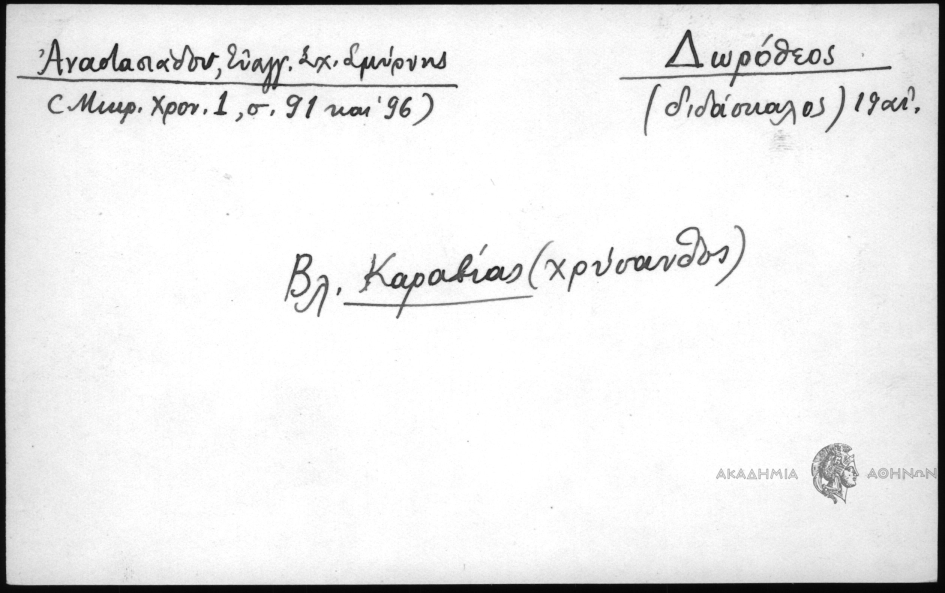 Ἀναστασιάδου, Εὐαγγ. Σχ. Σμύρνης
(Μικρ. Χρον. 1, σ. 91 καὶ 96)
Δωρόθεος
(διδάσκαλος) 19 αἰ.
Βλ. Καραβίας (χρύσανθος)
ΑΚΑΔΗΜΙΑ ΑΘΗΝΩΝ